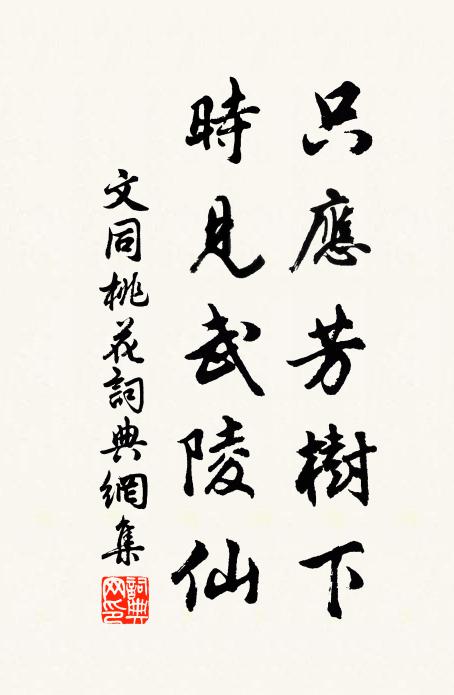 只應芳樹下
時見武陵仙
文同桃花詞典網集
詞典网印